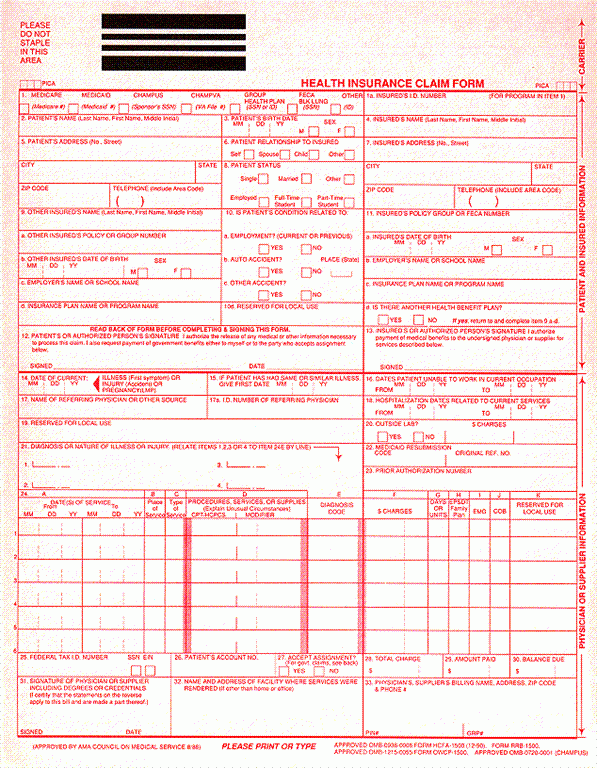 PLEASE
DO NOT
STAPLE
IN THIS
AREA
CARRIER
PICA
HEALTH INSURANCE CLAIM FORM
PICA
1. MEDICARE MEDICAID CHAMPUS CHAMPVA GROUP HEALTH PLAN FECA BLK LUNG OTHER
(Medicare #) (Medicaid #) (Sponsor's SSN) (VA File #) (SSN or ID) (SSN) (ID)
1a. INSURED'S I.D. NUMBER (FOR PROGRAM IN ITEM 1)
2. PATIENT'S NAME (Last Name, First Name, Middle Initial)
3. PATIENT'S BIRTH DATE SEX
MM DD YY M F
4. INSURED'S NAME (Last Name, First Name, Middle Initial)
5. PATIENT'S ADDRESS (No., Street)
6. PATIENT RELATIONSHIP TO INSURED
Self Spouse Child Other
7. INSURED'S ADDRESS (No., Street)
CITY STATE
8. PATIENT STATUS
Single Married Other
CITY STATE
ZIP CODE TELEPHONE (Include Area Code)
( )
Employed Full-Time Student Part-Time Student
ZIP CODE TELEPHONE (INCLUDE AREA CODE)
( )
9. OTHER INSURED'S NAME (Last Name, First Name, Middle Initial)
10. IS PATIENT'S CONDITION RELATED TO:
11. INSURED'S POLICY GROUP OR FECA NUMBER
a. OTHER INSURED'S POLICY OR GROUP NUMBER
a. EMPLOYMENT? (CURRENT OR PREVIOUS)
YES NO
a. INSURED'S DATE OF BIRTH SEX
MM DD YY M F
b. OTHER INSURED'S DATE OF BIRTH SEX
MM DD YY M F
b. AUTO ACCIDENT? PLACE (State)
YES NO
b. EMPLOYER'S NAME OR SCHOOL NAME
c. EMPLOYER'S NAME OR SCHOOL NAME
c. OTHER ACCIDENT?
YES NO
c. INSURANCE PLAN NAME OR PROGRAM NAME
d. INSURANCE PLAN NAME OR PROGRAM NAME
10d. RESERVED FOR LOCAL USE
d. IS THERE ANOTHER HEALTH BENEFIT PLAN?
YES NO If yes, return to and complete item 9 a-d.
PATIENT AND INSURED INFORMATION
READ BACK OF FORM BEFORE COMPLETING & SIGNING THIS FORM.
12. PATIENT'S OR AUTHORIZED PERSON'S SIGNATURE I authorize the release of any medical or other information necessary
to process this claim. I also request payment of government benefits either to myself or to the party who accepts assignment
below.
SIGNED DATE
13. INSURED'S OR AUTHORIZED PERSON'S SIGNATURE I authorize
payment of medical benefits to the undersigned physician or supplier for
services described below.
SIGNED
14. DATE OF CURRENT: ILLNESS (First symptom) OR
MM DD YY INJURY (Accident) OR
PREGNANCY(LMP)
15. IF PATIENT HAS HAD SAME OR SIMILAR ILLNESS.
GIVE FIRST DATE MM DD YY
16. DATES PATIENT UNABLE TO WORK IN CURRENT OCCUPATION
MM DD YY MM DD YY
FROM TO
17. NAME OF REFERRING PHYSICIAN OR OTHER SOURCE
17a. I.D. NUMBER OF REFERRING PHYSICIAN
18. HOSPITALIZATION DATES RELATED TO CURRENT SERVICES
MM DD YY MM DD YY
FROM TO
19. RESERVED FOR LOCAL USE
20. OUTSIDE LAB? $ CHARGES
YES NO
21. DIAGNOSIS OR NATURE OF ILLNESS OR INJURY. (RELATE ITEMS 1,2,3 OR 4 TO ITEM 24E BY LINE)
1. 3.
2. 4.
22. MEDICAID RESUBMISSION
CODE ORIGINAL REF. NO.
23. PRIOR AUTHORIZATION NUMBER
24. A B C D E F G H I J K
DATE(S) OF SERVICE
From To
MM DD YY MM DD YY
Place of Service
Type of Service
PROCEDURES, SERVICES, OR SUPPLIES
(Explain Unusual Circumstances)
CPT/HCPCS MODIFIER
DIAGNOSIS CODE
$ CHARGES
DAYS OR UNITS
EPSDT Family Plan
EMG
COB
RESERVED FOR LOCAL USE
1
2
3
4
5
6
PHYSICIAN OR SUPPLIER INFORMATION
25. FEDERAL TAX I.D. NUMBER SSN EIN
26. PATIENT'S ACCOUNT NO.
27. ACCEPT ASSIGNMENT?
(For govt. claims, see back)
YES NO
28. TOTAL CHARGE
$
29. AMOUNT PAID
$
30. BALANCE DUE
$
31. SIGNATURE OF PHYSICIAN OR SUPPLIER
INCLUDING DEGREES OR CREDENTIALS
(I certify that the statements on the reverse
apply to this bill and are made a part thereof.)
SIGNED DATE
32. NAME AND ADDRESS OF FACILITY WHERE SERVICES WERE
RENDERED (If other than home or office)
33. PHYSICIAN'S, SUPPLIER'S BILLING NAME, ADDRESS, ZIP CODE
& PHONE #
PIN# GRP#
(APPROVED BY AMA COUNCIL ON MEDICAL SERVICE 8/88)
PLEASE PRINT OR TYPE
APPROVED OMB-0938-0008 FORM HCFA-1500 (12-90), FORM RRB-1500,
APPROVED OMB-1215-0055 FORM OWCP-1500, APPROVED OMB-0720-0001 (CHAMPUS)